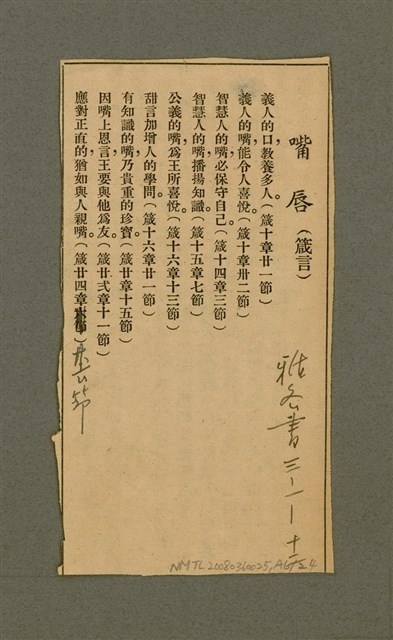 嘴唇(箴言)
義人的口,教養多人。(箴十章廿一節)
義人的嘴,能令人喜悅。(箴十章卅二節)
智慧人的嘴,必保守自己。(箴十四章三節)
智慧人的嘴,播揚知識。(箴十五章七節)
公義的嘴,爲王所喜悅。(箴十六章十三節)
甜言加增人的學問。(箴十六章廿一節)
有知識的嘴,乃貴重的珍寶。(箴廿章十五節)
因嘴上恩言,王要與他爲友。(箴廿弍章十一節)
應對正直的,猶如與人親嘴。(箴廿四章 節)廿六節
雅各書三-1-十二
NMTL20080360025